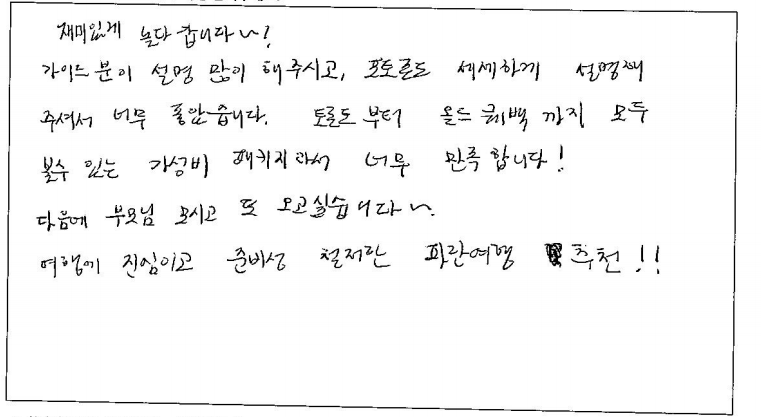 재미있게 놀다 갑니다~!
가이드 분이 설명 많이 해주시고, 포토존도 세세하게 설명해
주셔서 너무 좋았습니다. 토론토 부터 올드 퀘백 까지 모두
볼수 있는 가성비 패키지라서 너무 만족 합니다!
다음에 부모님 모시고 또 오고싶습니다~.
여행에 진심이고 준비성 철저한 파란여행 추천!!